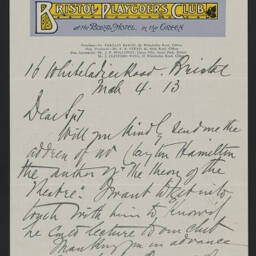 BRISTOL PLAYGOERS' CLUB
at the Royal Hotel, in the Green
16 Whiteladies Road. Bristol
Mch 4. 13
Dear Sir
Will you kindly send me the
address of Mr Clayton Hamilton
the author of "The Theory of the
Theatre". I want to get into
touch with him to know if
he could lecture to our club
Thanking you in advance